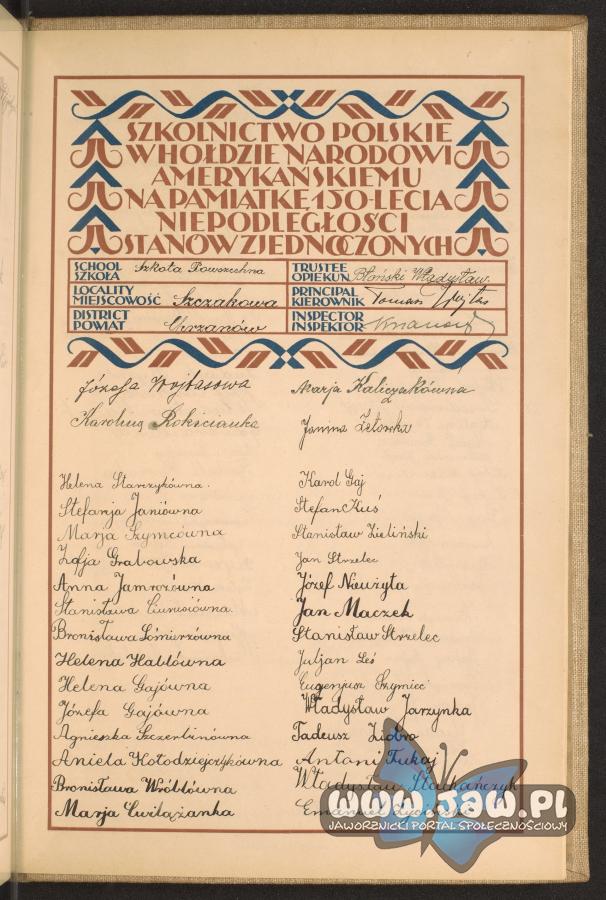 SZKOLNICTWO POLSKIE
W HOŁDZIE NARODOWI
AMERYKAŃSKIEMU
NA PAMIĄTKĘ 150-LECIA
NIEPODLEGŁOŚCI
STANÓW ZJEDNOCZONYCH
SCHOOL
SZKOŁA Szkoła Powszechna
TRUSTEE
OPIEKUN Błoński Władysław
LOCALITY
MIEJSCOWOŚĆ Szczakowa
PRINCIPAL
KIEROWNIK Tomasz Wojtas
DISTRICT
POWIAT Chrzanów
INSPECTOR
INSPEKTOR
Józefa Wojtasowa
Marja Kaliczakówna
Karolina Rokicianka
Janina
Helena Starczykówna.
Karol Gaj
Stefanja Janiówna
Stefan Kuś
Marja Szymcówna
Stanisław Zieliński
Zofja Grabowska
Jan Strzelec
Anna Jamrozówna
Józef Nieużyła
Stanisława
Jan Maczek
Bronisława
Stanisław Strzelec
Helena Habłówna
Juljan Leś
Helena Gajówna
Eugenjusz Szymiec
Józefa Gajówna
Władysław Jarzynka
Agnieszka Szczerbinówna
Tadeusz Ziobro
Aniela Kołodziejczykówna
Antoni Tukaj
Bronisława Wróblówna
Władysław
Marja Ćwilążanka
Emanuel
www.JAW.PL
JAWORZNICKI PORTAL SPOŁECZNOŚCIOWY